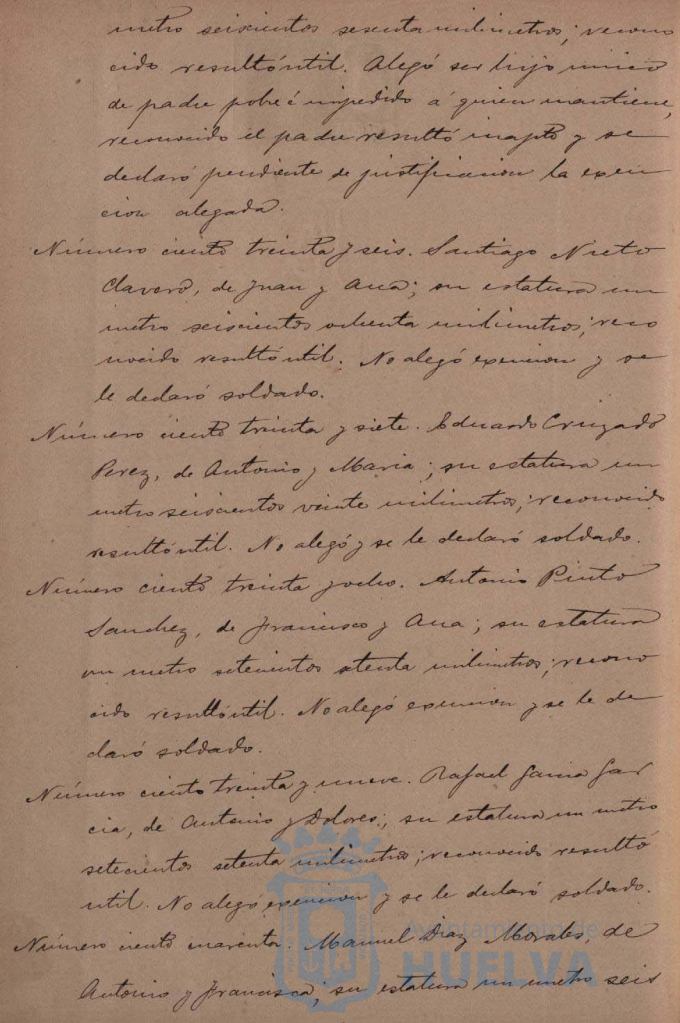 metro seiscientos sesenta milimetros; recono
cido resultó útil. Alegó ser hijo único
de padre pobre é impedido á quien mantiene,
reconocido el padre resultó inapto y se
declaró pendiente de justificacion la exen
cion alegada.
Número ciento treinta y seis. Santiago Nieto
Clavero, de Juan y Ana; su estatura un
metro seiscientos ochenta milimetros; reco
nocido resultó util. No alegó exencion y se
le declaró soldado.
Número ciento treinta y siete. Eduardo Cruzado
Perez, de Antonio y Maria; su estatura un
metro seiscientos veinte milimetros; reconocido
resultó útil. No alegó y se le declaró soldado.
Número ciento treinta y ocho. Antonio Pinto
Sanchez, de Francisco y Ana; su estatura
un metro setecientos setenta milimetros; recono
cido resultó útil. No alegó exencion y se le de
claró soldado.
Número ciento treinta y nueve. Rafael Gar
cia, de Antonio y Dolores; su estatura un metro
setecientos setenta milimetros; reconocido resultó
util. No alegó exencion y se le declaró soldado.
Número ciento cuarenta. Manuel Diaz Morales, de
Antonio y Francisca; su estatura un metro seis
Ayuntamiento de
HUELVA